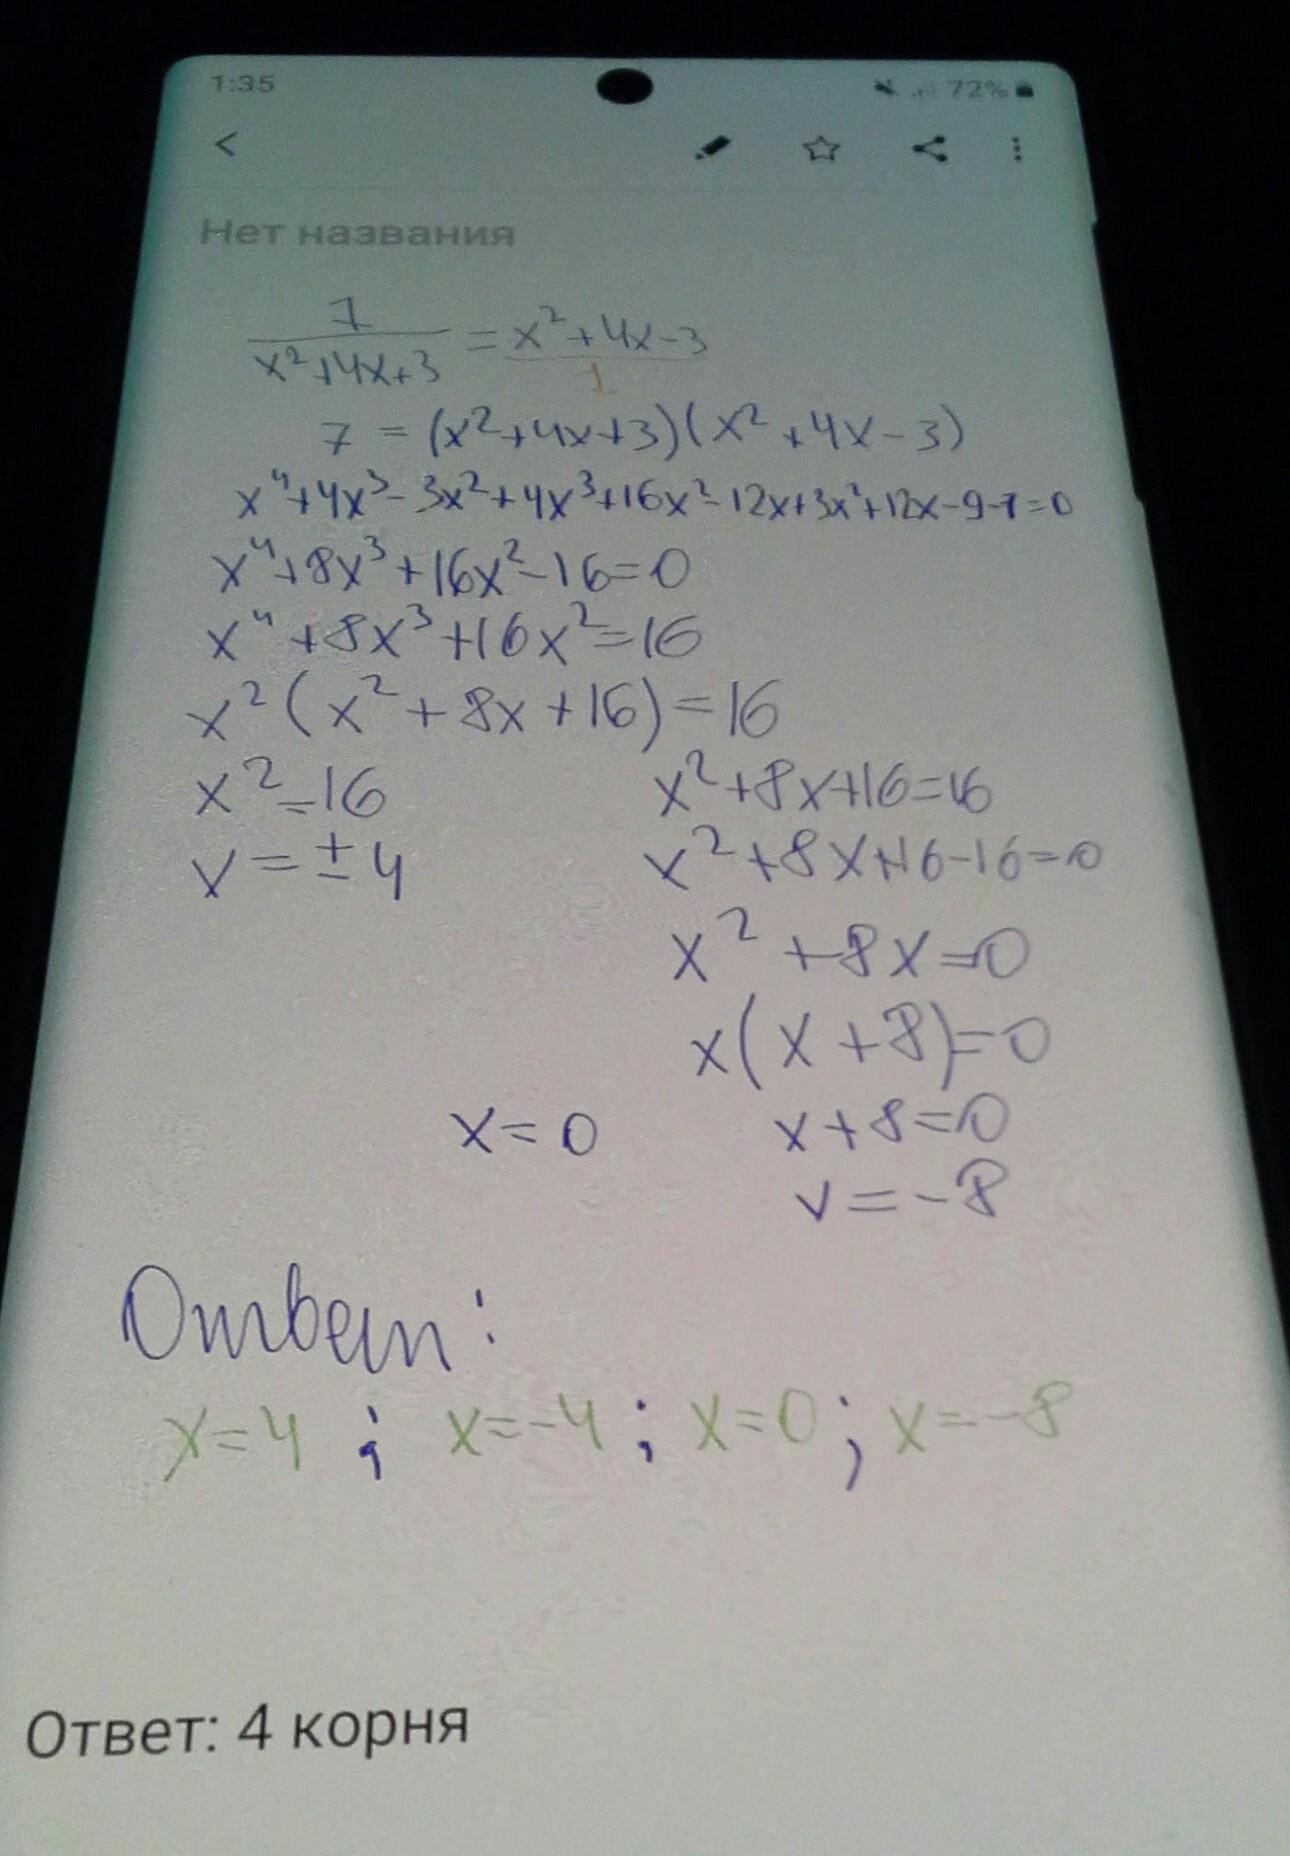 1:35 72%
Нет названия
7/(x²+4x+3) = (x²+4x-3)/1
7 = (x²+4x+3)(x²+4x-3)
x⁴+4x³-3x²+4x³+16x²-12x+3x²+12x-9-7=0
x⁴+8x³+16x²-16=0
x⁴+8x³+16x²=16
x²(x²+8x+16)=16
x²=16 x²+8x+16=16
x=±4 x²+8x+16-16=0
x²+8x=0
x(x+8)=0
x=0 x+8=0
x=-8
Ответ:
x=4 ; x=-4 ; x=0 ; x=-8
Ответ: 4 корня